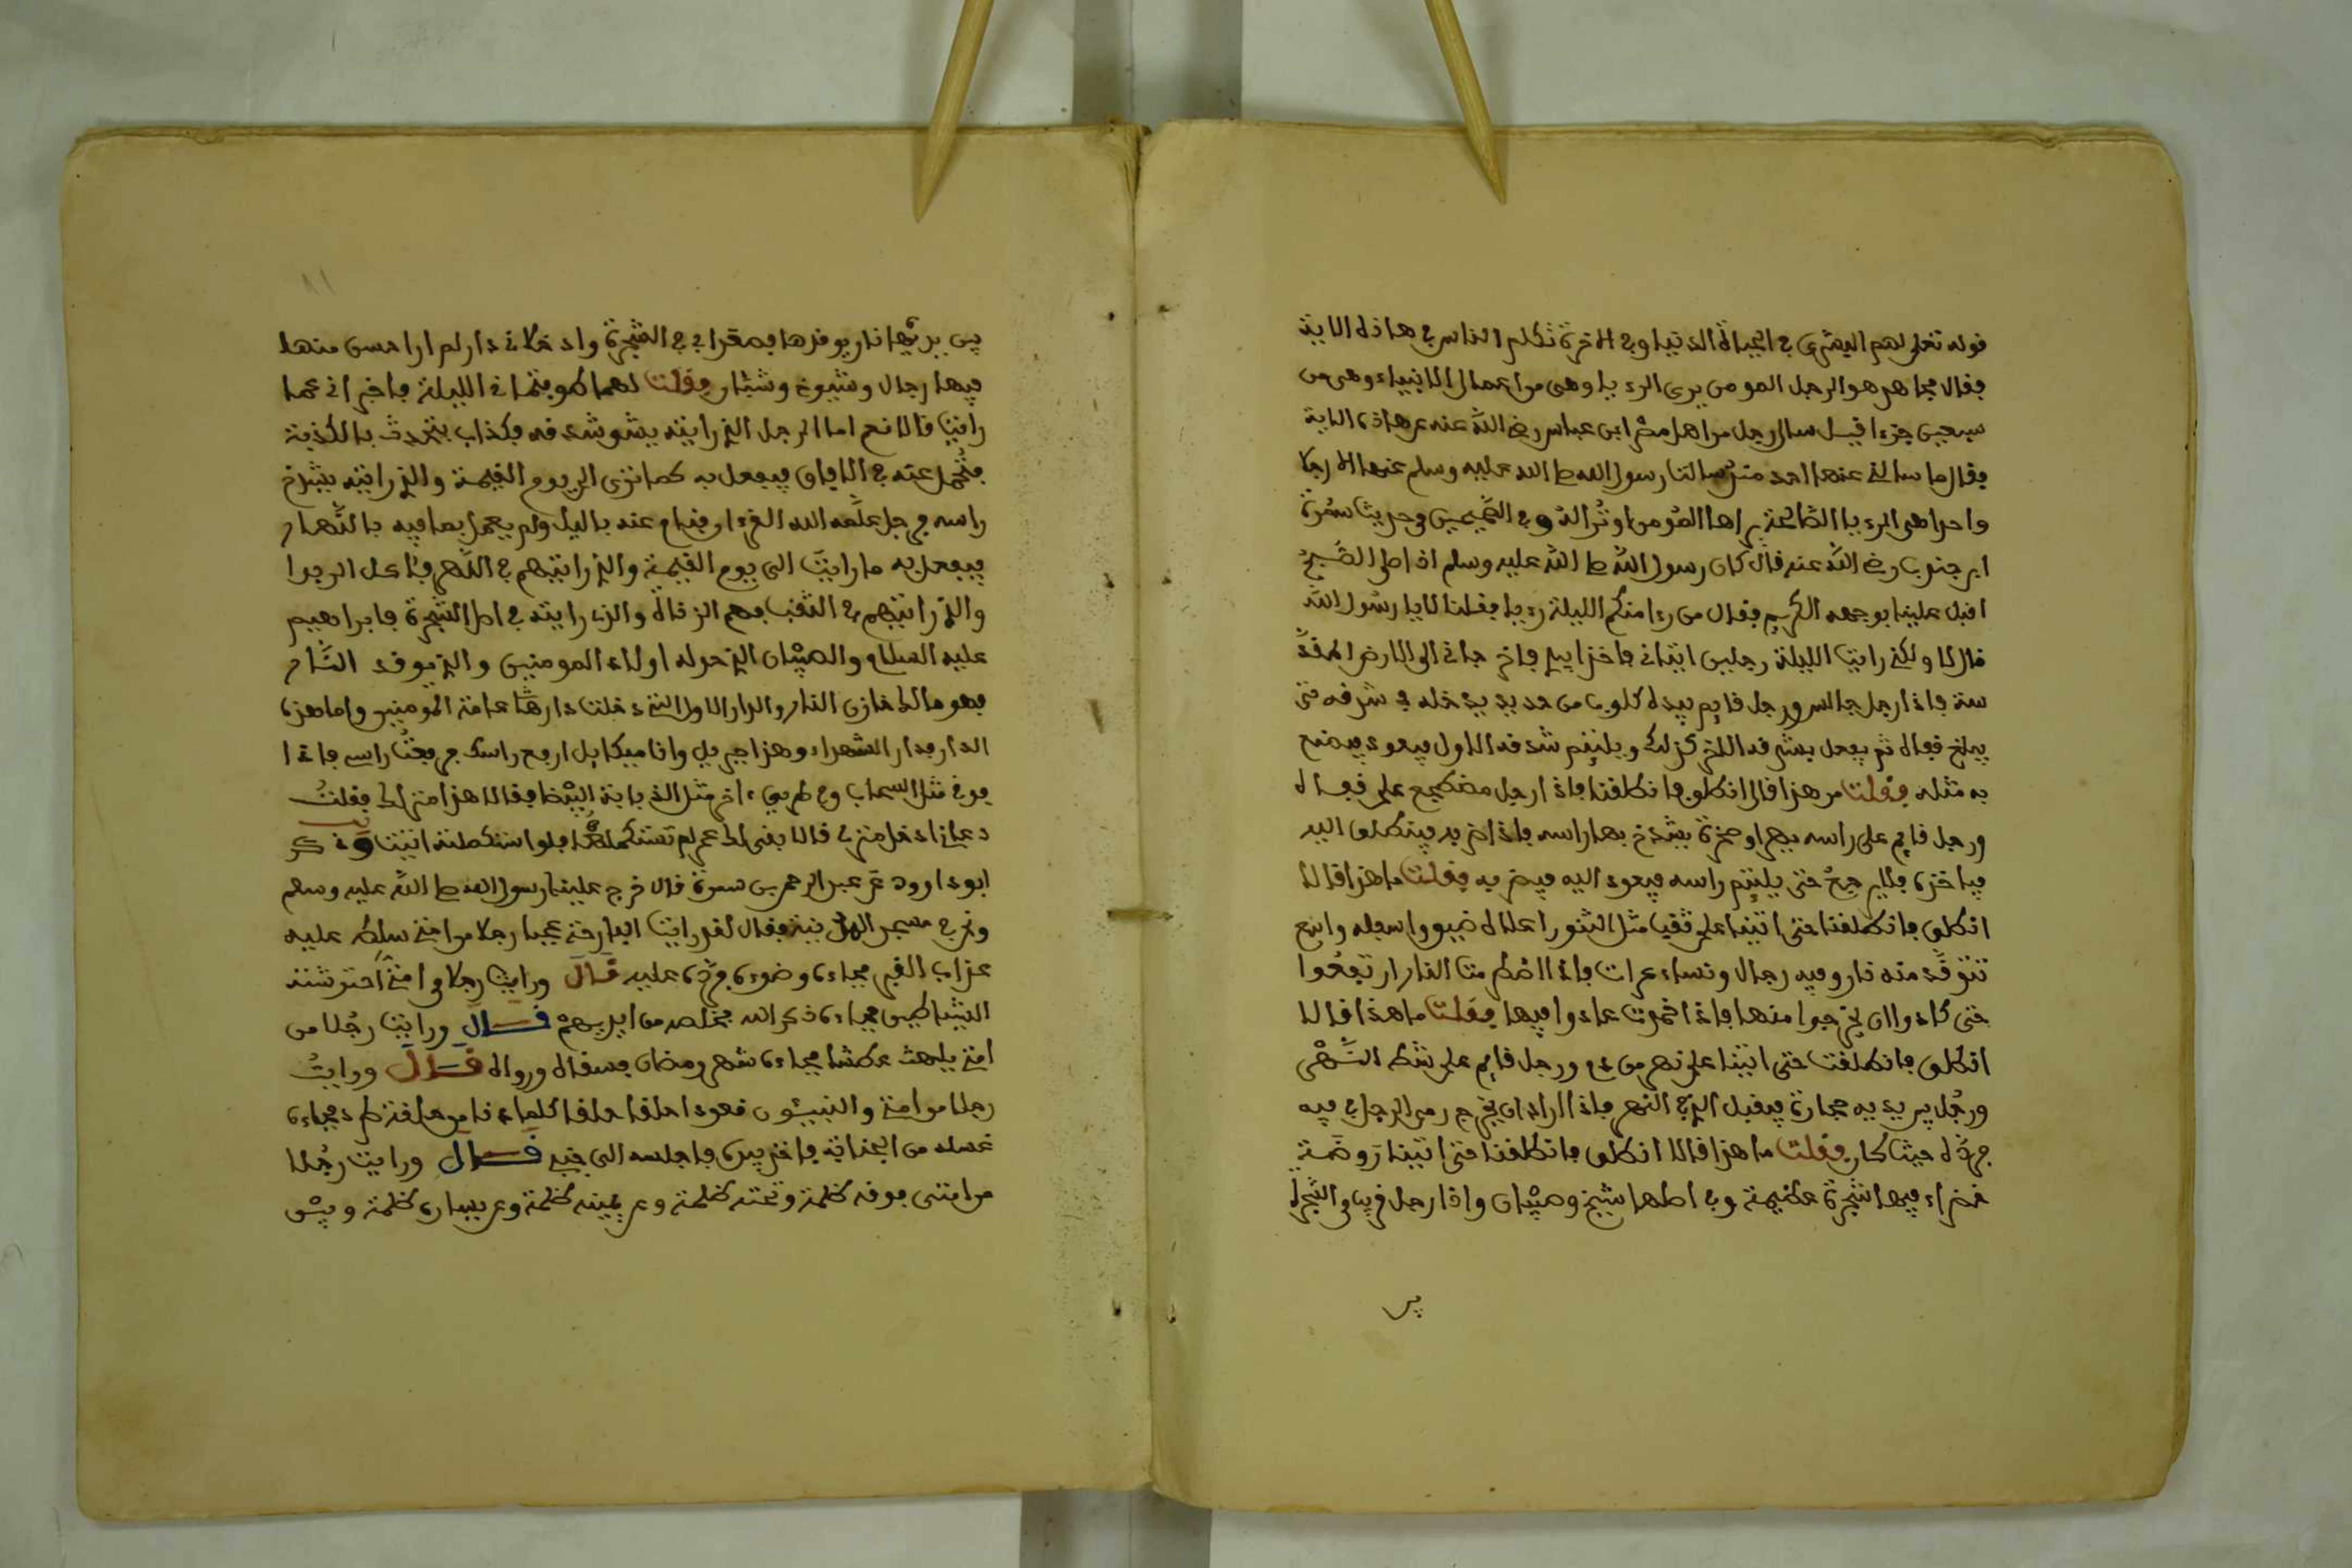 قوله تعلى لهم البشرى في الحياة الدنيا وفي الاخرة تكلم الناس في هاذه الاية
فقال مجاهد هو الرجل المومن يرى الرءيا وهي من اعمال الانبياء وهي من
سبعين جزءا قيل سال رجل من اهل مصر ابن عباس رضي الله عنه عن هاذه الاية
فقال ما سالني عنها احد منذ سالنا رسول الله صلى الله عليه وسلم عنها الا رجلا
واحدا هي الرءيا الصالحة يراها المؤمن او ترا له وفي الصحيحين في حديث سمرة
ابن جندب رضي الله عنه قال كان رسول الله صلى الله عليه وسلم اذا صلى الصبح
اقبل علينا بوجهه الكريم فقال من رءا منكم الليلة رءيا فقلنا لا يا رسول الله
قال لا ولكني رايت الليلة رجلين اتياني فاخذا بيدي فاخرجاني الى الارض المقد
سة فاذا رجل جالس ورجل قايم بيده كلوب من حديد يدخله في شدقه حتى
يبلغ قفاه ثم يفعل بشدقه الاخر كذلك ويلتيم شدقه الاول فيعود فيصنع
به مثله فقلت من هذا قالا انطلق فانطلقنا فاذا رجل مضطجع على قفاه
ورجل قايم على راسه بفهر او صخرة يشدخ بها راسه فاذا ضربه فينطلق اليه
فياخذه فلا يرجع حتى يلتيم راسه فيعود اليه فيضربه فقلت ما هذا قالا
انطلق فانطلقنا حتى اتينا على ثقب مثل التنور اعلاه ضيق واسفله واسع
تتوقد منه نار وفيه رجال ونساء عرات فاذا اضطرمت النار ارتفعوا
حتى كادوا ان يخرجوا منها فاذا خمدت عادوا فيها فقلت ما هذا قالا
انطلق فانطلقنا حتى اتينا على نهر من دم ورجل قايم على شط النهر
ورجل بين يديه حجارة فيقبل الذي في النهر فاذا اراد ان يخرج رمى الرجل في فيه
فرده حيث كان فقلت ما هذا قالا انطلق فانطلقنا حتى اتينا روضة
خضراء فيها شجرة عظيمة وفي اصلها شيخ وصبيان واذا رجل قريب من الشجرة
بين
بين يديها نار يوقدها فصعدا بي في الشجرة وادخلاني دارا لم ارا احسن منها
فيها رجال وشيوخ وشباب فقلت لهما طوفتماني الليلة فاخبراني عما
رايت قالا نعم اما الرجل الذي رايته يشق شدقه فكذاب يتحدث بالكذبة
فتحمل عنه في الافاق فيفعل به كما ترى الى يوم القيمة والذي رايته يشدخ
راسه فرجل علمه الله القرءان فنام عنه بالليل ولم يعمل بما فيه بالنهار
فيفعل به ما رايت الى يوم القيمة والذي رايتهم في النهر فئاكل الربوا
والذي رايتهم في الثقب فهم الزناة والذي رايته في اصل الشجرة فابراهيم
عليه السلام والصبيان الذي حوله اولاد المومنين والذي يوقد النار
فهو مالك خازن النار والدار الاول التي دخلت دارها عامة المومنين واما هذه
الدار فدار الشهداء وهذا جبريل وانا ميكايل ارفع راسك فرفعت راسي فاذا
فوقي مثل السحاب وفي طريق ءاخر مثل الذبابة البيضا فقالا هذا منزلك فقلت
دعاني ادخل منزلي قالا بقي لك عمر لم تستكمله فلو استكملته اتيت وذكر
ابو داوود عن عبد الرحمن بن سمرة قال خرج علينا رسول الله صلى الله عليه وسلم
ونحن في مسجد المدينة فقال لقد رايت البارحة عجبا رجلا من امتي سلط عليه
عذاب القبر فجاءه وضوءه فرده عليه قال ورايت رجلا من امتي احتوشته
الشياطين فجاءه ذكر الله فخلصه من ايديهم قال ورايت رجلا من
امتي يلهث عطشا فجاءه شهر رمضان فسقاه ورواه قال ورايت
رجلا من امتي والنبيئون قعودا حلقا حلقا كلما دنا من حلقة طرد فجاءه
غسله من الجنابة فاخذ بيده فاجلسه الى جنبي قال ورايت رجلا
من امتي فوقه ظلمة وتحته ظلمة وعن يمينه ظلمة وعن يساره ظلمة وبين